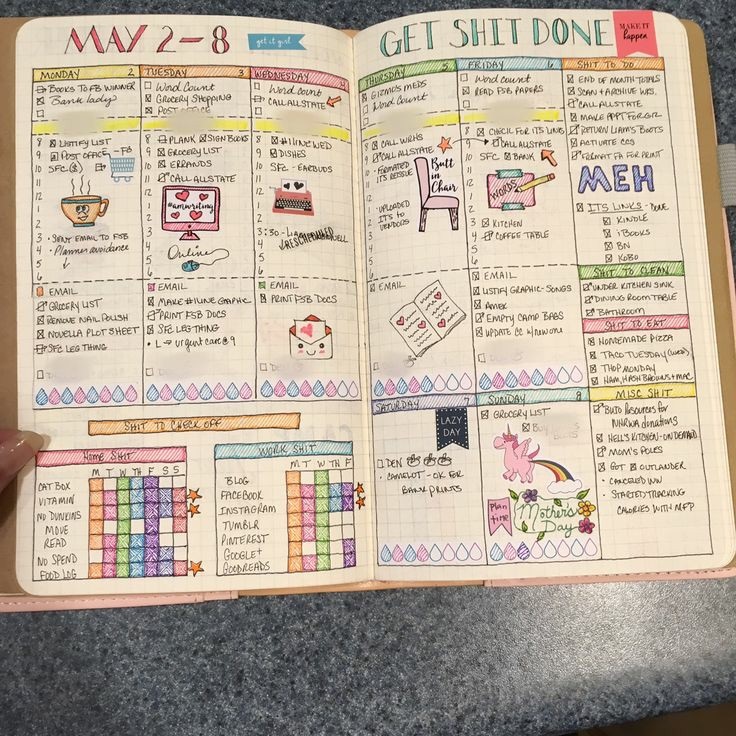 MAY 2-8
get it girl
GET SHIT DONE
MAKE IT
happen
MONDAY 2
BOOKS TO FB WINNER
Bank lady
8 LISTIFY LIST
9 POST OFFICE - FB
SFC
11
12
1
2
3 • SENT EMAIL TO FSB
4 • Planner avoidance
5
6
EMAIL
GROCERY LIST
REMOVE NAIL POLISH
NOVELLA PLOT SHEET
SFC LEG THING
TUESDAY 3
Word Count
GROCERY SHOPPING
POST OFFICE
8 PLANK SIGN BOOKS
9 GROCERY LIST
10 ERRANDS
11 CALL ALLSTATE
12
1
#amwriting
2
3
4
Online
5
6
EMAIL
MAKE #1LINE GRAPHIC
PRINT FSB DOCS
SFC LEG THING
• L → urgent care @ 9
WEDNESDAY 4
Word Count
CALL ALLSTATE
8 #1LINEWED
9 DISHES
SFC - EARBUDS
11
12
1
2
3:30 -
RESCHEDULED
4
5
6
EMAIL
PRINT FSB DOCS
SHIT TO CHECK OFF
HOME SHIT
M T W T F S S
CAT BOX
VITAMIN
NO DUNKINS
MOVE
READ
NO SPEND
FOOD LOG
WORK SHIT
M T W T F
BLOG
FACEBOOK
INSTAGRAM
TUMBLR
PINTEREST
GOOGLE+
GOODREADS
THURSDAY 5
GIZMOS MEDS
Word Count
8 CALL WRHS
9 CALL ALLSTATE
10 • FORMATED
11 ITS REISSUE
12
Butt
in
Chair
1
2 • UPLOADED
3 ITS TO
4 VENDORS
5
6
EMAIL
FRIDAY 6
Word Count
READ FSB PAPERS
8 CHECK FOR ITS LINKS
9 CALL ALLSTATE
SFC BANK
11
12
WORDS
1
2
3 KITCHEN
4 COFFEE TABLE
5
6
EMAIL
LISTIFY GRAPHIC-SONGS
AMEX
EMPTY CAMP BAGS
UPDATE CC w/ new one
SATURDAY 7
LAZY
DAY
DEN
• CAMELOT - OK FOR
BANK PRINTS
SUNDAY 8
GROCERY LIST
Plan
time
Mother's
Day
SHIT TO DO
END OF MONTH TOTALS
SCAN + ARCHIVE WRS.
CALL ALLSTATE
MAKE APPT FOR GIZ
RETURN LIAM'S BOOTS
ACTIVATE CCS
FORMAT FA FOR PRINT
MEH
ITS LINKS - DONE
KINDLE
iBOOKS
BN
KOBO
SHIT TO CLEAN
UNDER KITCHEN SINK
DINING ROOM TABLE
BATHROOM
SHIT TO EAT
HOMEMADE PIZZA
TACO TUESDAY (WEDS)
THOP MONDAY
HAM, HASH BROWNS + MAC
MISC SHIT
BUJO RESOURCES FOR
NHRWA DONATIONS
HELL'S KITCHEN - ON DEMAND
MOM'S POLES
GOT OUTLANDER
• CANCELED WW
• STARTED TRACKING
CALORIES WITH MFP